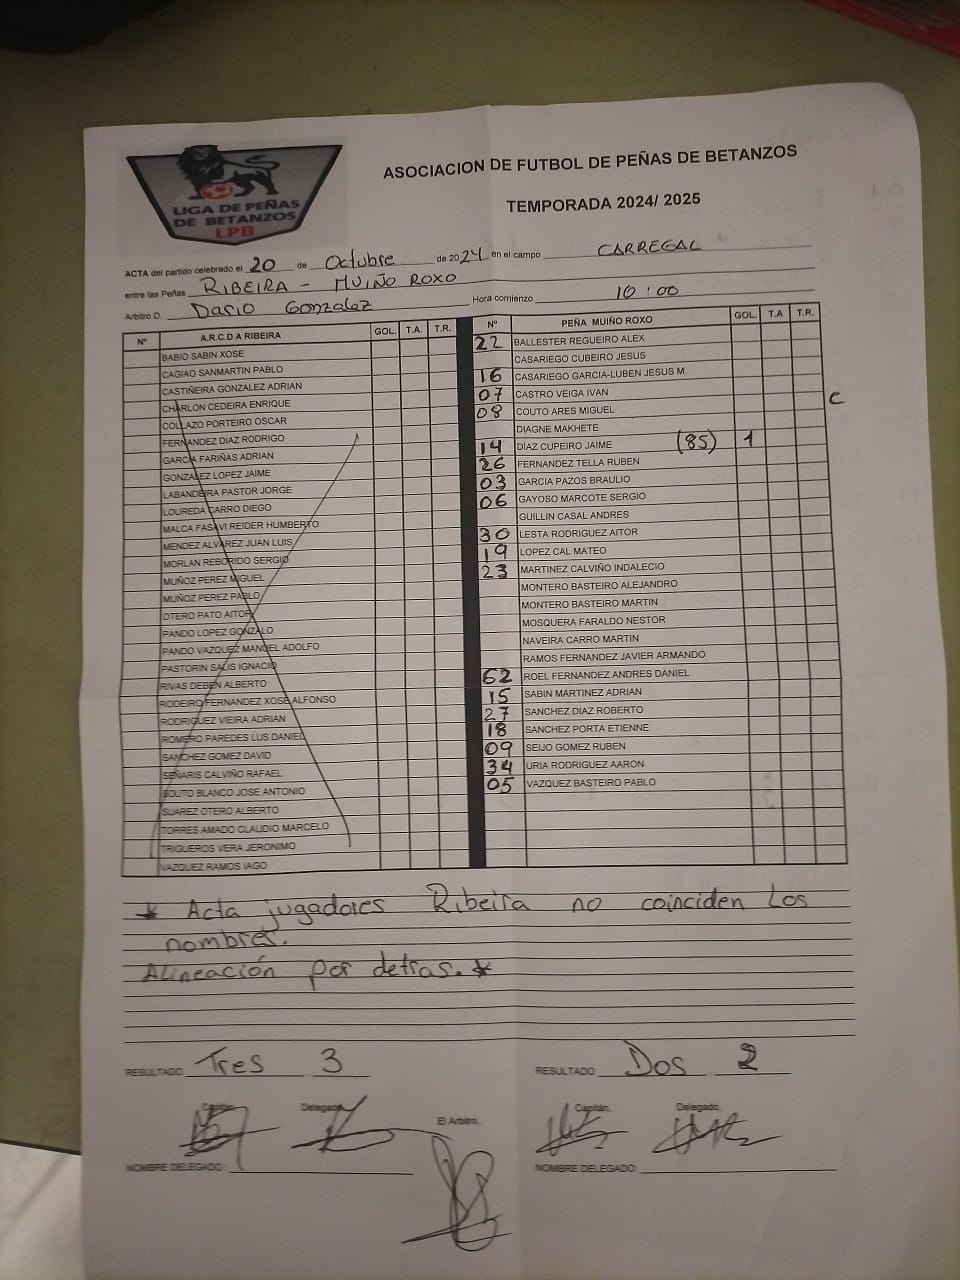 LIGA DE PEÑAS
DE BETANZOS
LPB
ASOCIACION DE FUTBOL DE PEÑAS DE BETANZOS
TEMPORADA 2024/ 2025
ACTA del partido celebrado el 20 de Octubre de 2024 en el campo CARREGAL
entre las Peñas RIBEIRA - MUIÑO ROXO
Arbitro D. Dario Gonzalez Hora comienzo 10:00
Nº A.R.C.D A RIBEIRA GOL. T.A. T.R.
BABIO SABIN XOSE
CAGIAO SANMARTIN PABLO
CASTIÑEIRA GONZALEZ ADRIAN
CHARLON CEDEIRA ENRIQUE
COLLAZO PORTEIRO OSCAR
FERNANDEZ DIAZ RODRIGO
GARCIA FARIÑAS ADRIAN
GONZALEZ LOPEZ JAIME
LABANDEIRA PASTOR JORGE
LOUREDA CARRO DIEGO
MALCA FASAVI REIDER HUMBERTO
MENDEZ ALVAREZ JUAN LUIS
MORLAN REBORIDO SERGIO
MUÑOZ PEREZ MIGUEL
MUÑOZ PEREZ PABLO
OTERO PATO AITOR
PANDO LOPEZ GONZALO
PANDO VAZQUEZ MANUEL ADOLFO
PASTORIN SALIS IGNACIO
RIVAS DEBEN ALBERTO
RODEIRO FERNANDEZ XOSE ALFONSO
RODRIGUEZ VIEIRA ADRIAN
ROMERO PAREDES LUS DANIEL
SANCHEZ GOMEZ DAVID
SEÑARIS CALVIÑO RAFAEL
SOUTO BLANCO JOSE ANTONIO
SUAREZ OTERO ALBERTO
TORRES AMADO CLAUDIO MARCELO
TRIGUEROS VERA JERONIMO
VAZQUEZ RAMOS IAGO
Nº PEÑA MUIÑO ROXO GOL. T.A T.R.
22 BALLESTER REGUEIRO ALEX
CASARIEGO CUBEIRO JESUS
16 CASARIEGO GARCIA-LUBEN JESUS M.
07 CASTRO VEIGA IVAN C
08 COUTO ARES MIGUEL
DIAGNE MAKHETE
14 DIAZ CUPEIRO JAIME (85) 1
26 FERNANDEZ TELLA RUBEN
03 GARCIA PAZOS BRAULIO
06 GAYOSO MARCOTE SERGIO
GUILLIN CASAL ANDRES
30 LESTA RODRIGUEZ AITOR
19 LOPEZ CAL MATEO
23 MARTINEZ CALVIÑO INDALECIO
MONTERO BASTEIRO ALEJANDRO
MONTERO BASTEIRO MARTIN
MOSQUERA FARALDO NESTOR
NAVEIRA CARRO MARTIN
RAMOS FERNANDEZ JAVIER ARMANDO
62 ROEL FERNANDEZ ANDRES DANIEL
15 SABIN MARTINEZ ADRIAN
27 SANCHEZ DIAZ ROBERTO
18 SANCHEZ PORTA ETIENNE
09 SEIJO GOMEZ RUBEN
34 URIA RODRIGUEZ AARON
05 VAZQUEZ BASTEIRO PABLO
* Acta jugadores Ribeira no coinciden los
nombres.
Alineación por detras. *
RESULTADO Tres 3 RESULTADO Dos 2
Capitán, Delegado, El Arbitro, Capitán, Delegado,
NOMBRE DELEGADO : NOMBRE DELEGADO: